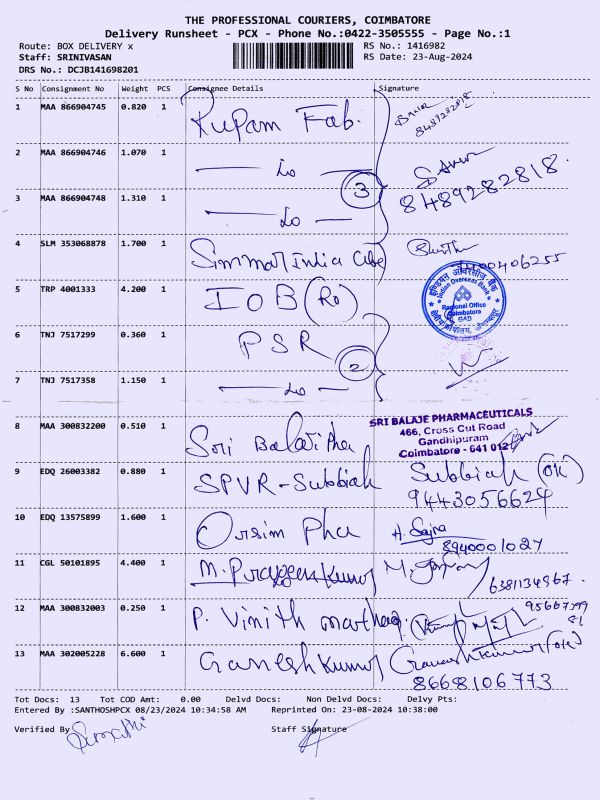 THE PROFESSIONAL COURIERS, COIMBATORE
Delivery Runsheet - PCX - Phone No.:0422-3505555 - Page No.:1
Route: BOX DELIVERY x
RS No.: 1416982
Staff: SRINIVASAN
RS Date: 23-Aug-2024
DRS No.: DCJB141698201
S No Consignment No Weight PCS Consignee Details Signature
1 MAA 866904745 0.820 1 Kupam Fab.
8489282818
2 MAA 866904746 1.070 1
8489282818.
3
3 MAA 866904748 1.310 1
4 SLM 353068878 1.700 1
5 TRP 4001333 4.200 1 IOB (Ro)
इण्डियन ओवरसीज़ बैंक
Indian Overseas Bank
Regional Office
Coimbatore
GAD
6 TNJ 7517299 0.360 1 PSR
2
7 TNJ 7517358 1.150 1
8 MAA 300832200 0.510 1
SRI BALAJE PHARMACEUTICALS
466, Cross Cut Road
Gandhipuram
Coimbatore - 641 012
9 EDQ 26003382 0.880 1 SPVR-Subbiah Subbiah
9443056624
10 EDQ 13575899 1.600 1 Orsim Pha
8940001027
11 CGL 50101895 4.400 1
6281134967.
12 MAA 300832003 0.250 1 P. Vinith
13 MAA 302005228 6.600 1 Ganesh Kumar Ganesh Kumar
8668106773
Tot Docs: 13 Tot COD Amt: 0.00 Delvd Docs: Non Delvd Docs: Delvy Pts:
Entered By :SANTHOSHPCX 08/23/2024 10:34:58 AM Reprinted On: 23-08-2024 10:38:00
Verified By
Staff Signature